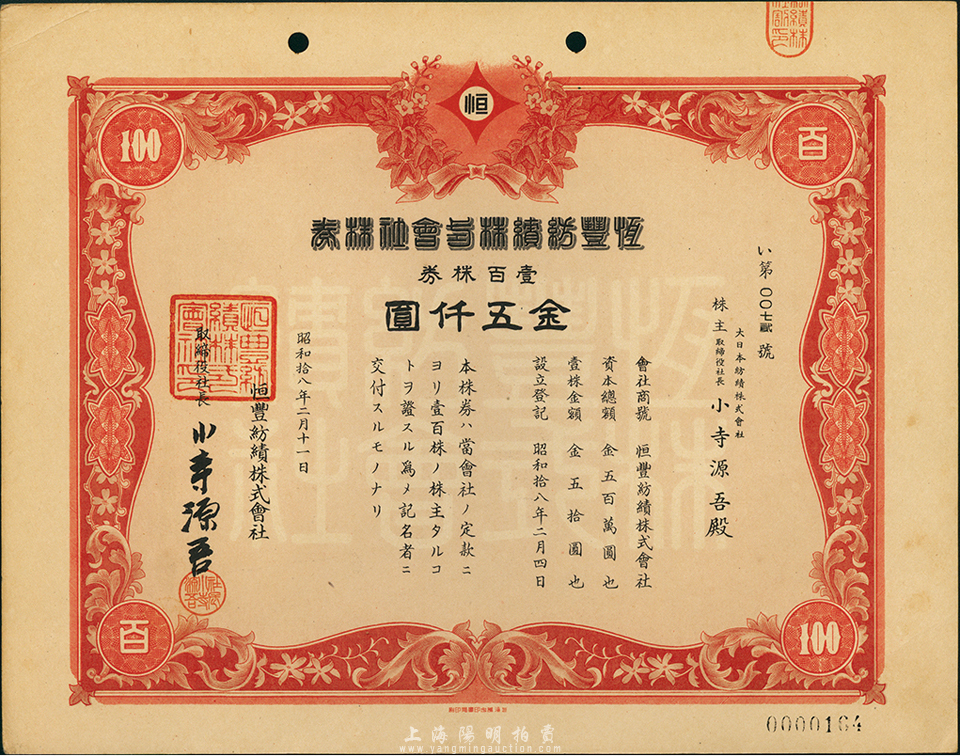 恒
100
百
恆豐紡績株式會社株券
壹百株券
金五仟圓
い第〇〇七貳號
大日本紡績株式會社
株主 取締役社長 小寺源吾殿
會社商號 恒豐紡績株式會社
資本總額 金五百萬圓也
壹株金額 金五拾圓也
設立登記 昭和拾八年二月四日
本株券ハ當會社ノ定款ニ
ヨリ壹百株ノ株主タルコ
トヲ證スル爲メ記名者ニ
交付スルモノナリ
昭和拾八年二月十一日
恒豐紡績株式會社
取締役社長 小寺源吾
百
100
0000164
上海陽明拍賣
www.yangmingauction.com